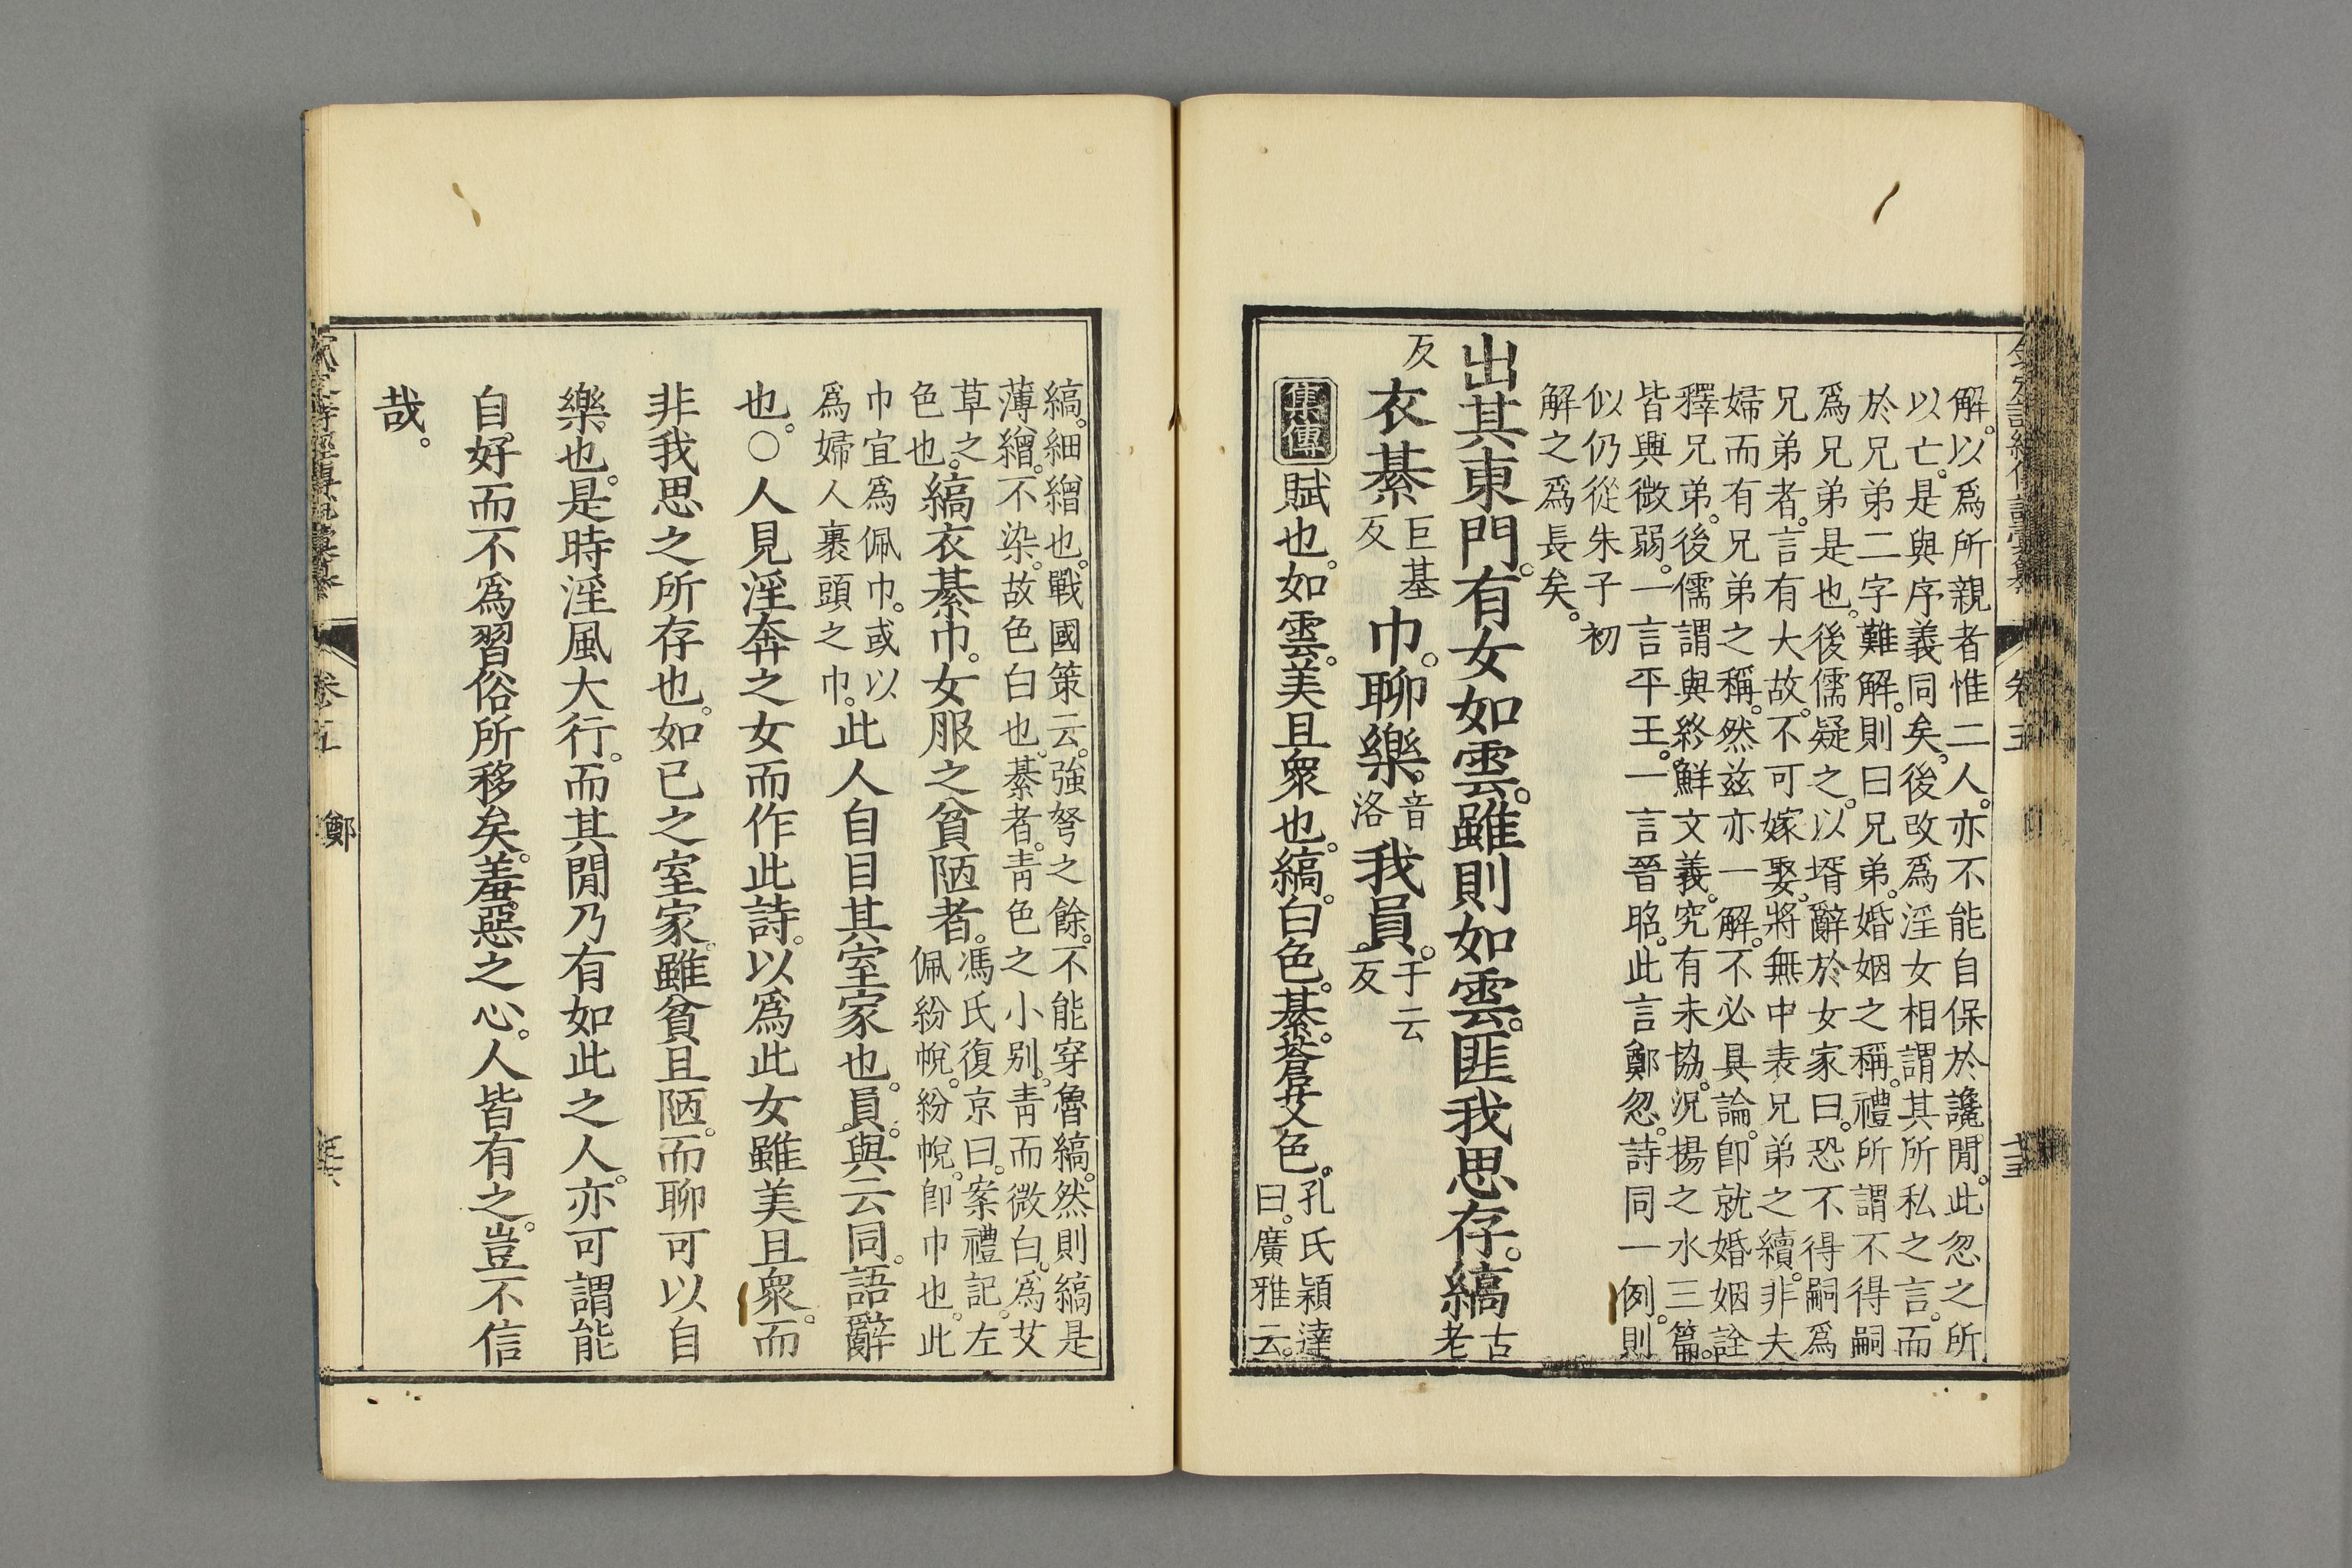 解。以爲所親者惟二人。亦不能自保於讒閒。此忽之所
以亡。是與序義同矣。後改爲淫女相謂其所私之言。而
於兄弟二字難解。則曰兄弟。婚姻之稱。禮所謂不得嗣
爲兄弟是也。後儒疑之。以壻辭於女家曰。恐不得嗣爲
兄弟者。言有大故。不可嫁娶。將無中表兄弟之續。非夫
婦而有兄弟之稱。然兹亦一解。不必具論。卽就婚姻詮
釋兄弟。後儒謂與終鮮文義。究有未協。況揚之水三篇。
皆與微弱。一言平王。一言晉昭。此言鄭忽。詩同一例。則
似仍從朱子初
解之爲長矣。
出其東門。有女如雲。雖則如雲。匪我思存。縞古老
反衣綦巨基反巾。聊樂音洛我員。于云反
集傳賦也。如雲。美且衆也。縞。白色。綦。蒼艾色。孔氏穎達曰。廣雅云。
縞。細繒也。戰國策云。強弩之餘。不能穿魯縞。然則縞是
薄繒。不染。故色白也。綦者。靑色之小別。靑而微白。爲艾
草之色也。縞衣綦巾。女服之貧陋者。馮氏復京曰。案禮記。左佩紛帨。紛帨。卽巾也。此
巾宜爲佩巾。或以爲婦人裹頭之巾。此人自目其室家也。員。與云同。語辭
也。○人見淫奔之女而作此詩。以爲此女雖美且衆。而
非我思之所存也。如己之室家。雖貧且陋。而聊可以自
樂也。是時淫風大行。而其閒乃有如此之人。亦可謂能
自好而不爲習俗所移矣。羞惡之心。人皆有之。豈不信
哉。
卷五
鄭